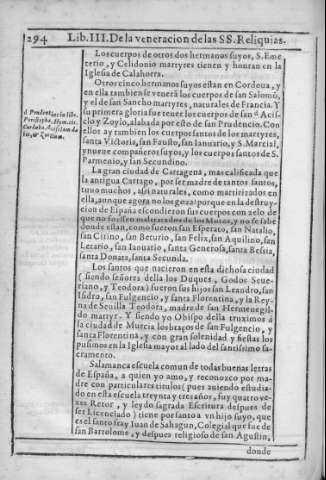 294 Lib. III. De la veneracion de las SS. Reliquias.
Los cuerpos de otros dos hermanos suyos, S. Eme
terio, y Celidonio martyres tienen y honran en la
Iglesia de Calahorra.
Otros cinco hermanos suyos estan en Cordoua, y
en ella tambien se venerã los cuerpos de san Salomõ,
y el de san Sancho martyres, naturales de Francia. Y
d Prudentius in lib.
su primera gloria fue tener los cuerpos de sanᵈ Acisc
lo y Zoylo, alabada por esto de san Prudencio. Con
ellos ay tambien los cuerpos santos de los martyres,
santa Victoria, san Fausto, san Ianuario, y S. Marcial,
y nueue compañeros suyos, y los cuerpos santos de S.
Parmenio, y san Secundino.
La gran ciudad de Cartagena, mas calificada que
la antigua Cartago, por ser madre de tantos santos,
tuuo muchos, assi naturales, como martirizados en
ella, aunque agora no los goza: porque en la destruy-
cion de España escondieron sus cuerpos con zelo de
que no fuessen maltratados de los Moros, y no se sabe
donde estan, como fueron san Esperato, san Natalio,
san Citino, san Beturio, san Felix, san Aquilino, san
Letario, san Ianuario, santa Generosa, santa Besia,
santa Donata, santa Secunda.
Los santos que nacieron en esta dichosa ciudad
(siendo señores della los Duques, Godos Seue-
riano, y Teodora) fueron sus hijos san Leandro, san
Isidro, san Fulgencio, y santa Florentina, y la Rey-
na de Seuilla Teodora, madre de san Hermenegil-
do martyr. Y siendo yo Obispo della truximos à
la ciudad de Murcia los braços de san Fulgencio, y
santa Florentina, y con gran solenidad y fiestas los
pusimos en la Iglesia mayor al lado del santissimo sa-
cramento.
Salamanca escuela comun de todas buenas letras
de España, a quien yo amo, y reconozco por ma-
dre con particulares titulos (pues auiendo estudia-
do en esta escuela treynta y tres años, fuy quatro ve-
zes Retor, y leydo sagrada Escritura despues de
ser Licenciado) tiene por santo a vn hijo suyo, que
es el santo fray Iuan de Sahagun, Colegial que fue de
san Bartolome, y despues religioso de san Agustin,
donde